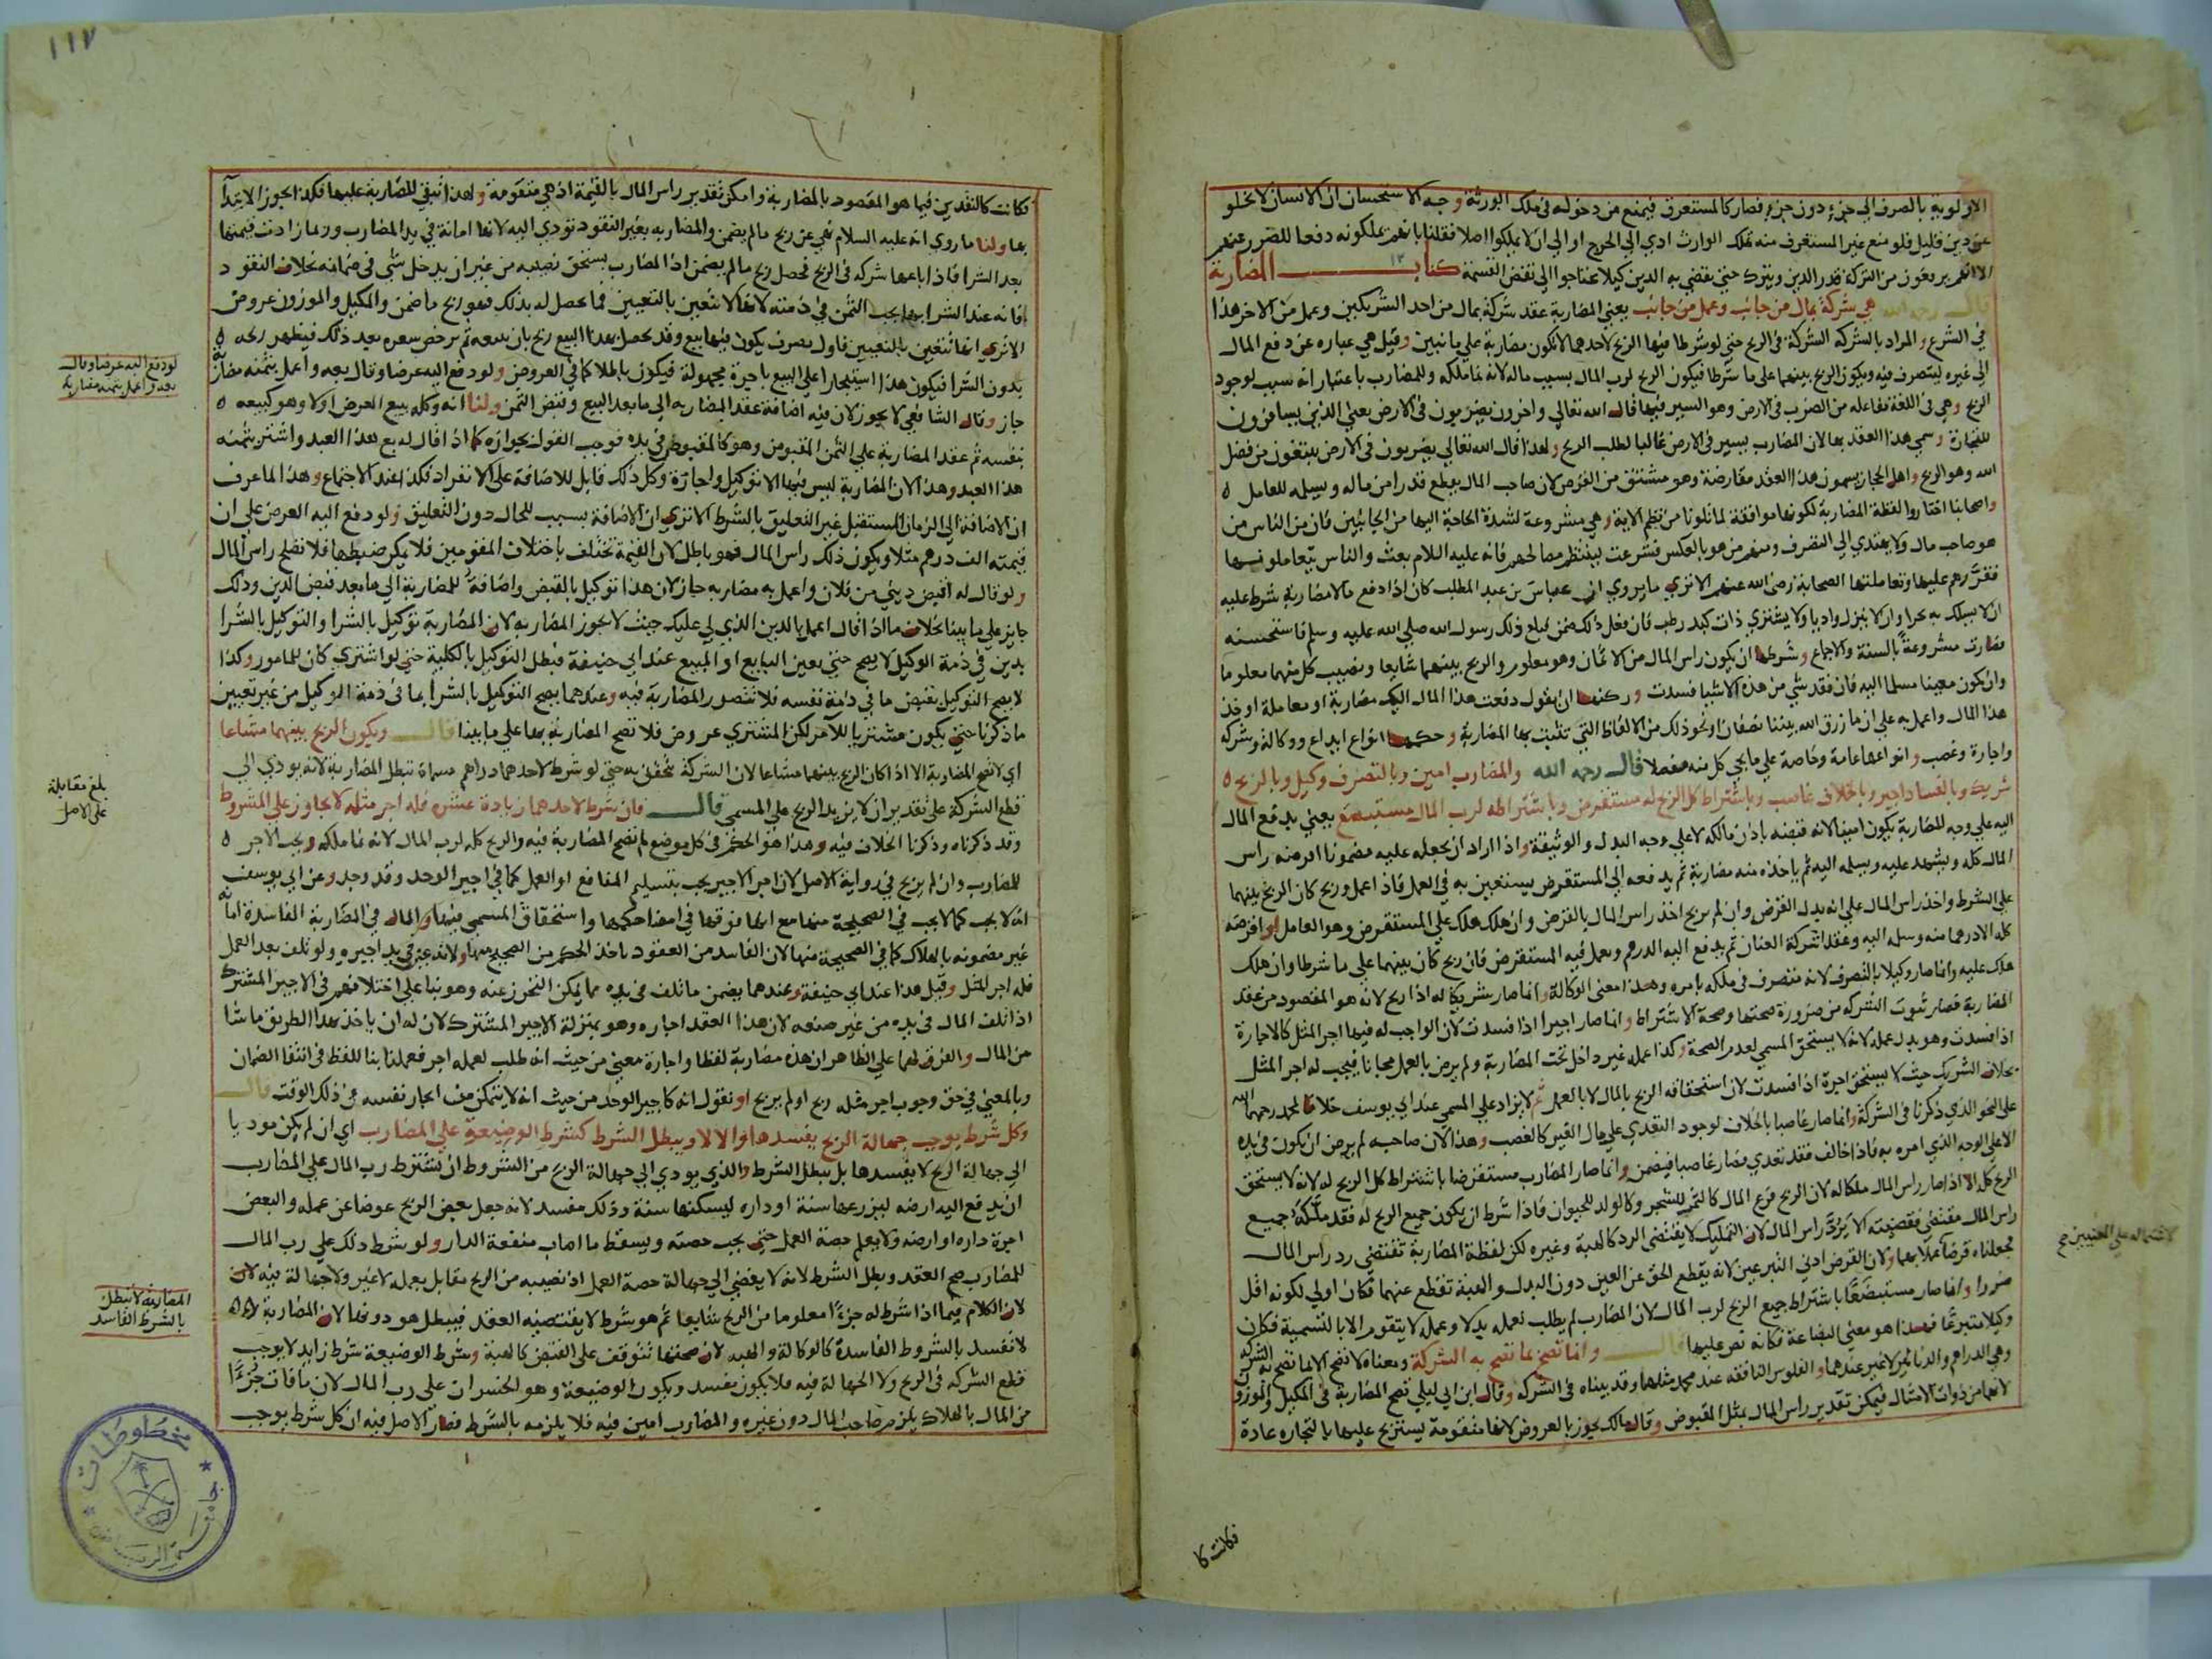 الاولوية بالصرف الى جزء دون جزء فصار كالمستغرق فيمنع من دخوله في ملك الورثة وجه الاستحسان ان الانسان لا يخلو
عن دين قليل فلو منع غير المستغرق منه تملك الوارث ادى الى الحرج او الى ان لا يملكوا اصلا فقلنا بانهم يملكونه دفعا للضرر عنهم
الا انهم يرفعون من التركة قدر الدين ويترك حتى يقضى به الدين كيلا يحتاجوا الى نقض القسمة كتاب المضاربة
قال رحمه الله هي شركة بمال من جانب وعمل من جانب يعني المضاربة عقد شركة بمال من احد الشريكين وعمل من الاخر هذا
في الشرع والمراد بالشركة الشركة في الربح حتى لو شرطا فيها الربح لاحدهما لا تكون مضاربة على ما نبين وقيل هي عبارة عن دفع المال
الى غيره ليتصرف فيه ويكون الربح بينهما على ما شرطا فيكون الربح لرب المال بسبب ماله لانه نما ملكه وللمضارب باعتبار انه سبب لوجود
الربح وهي في اللغة مفاعلة من الضرب في الارض وهو السير فيها قال الله تعالى واخرون يضربون في الارض يعني الذين يسافرون
للتجارة وسمي هذا العقد بها لان المضارب يسير في الارض غالبا لطلب الربح ولهذا قال الله تعالى يضربون في الارض يبتغون من فضل
الله وهو الربح واهل الحجاز يسمون هذا العقد مقارضة وهو مشتق من القرض لان صاحب المال يقطع قدرا من ماله ويسلمه للعامل
واصحابنا اختاروا لفظة المضاربة لكونها موافقة لما تلونا من نظم الاية وهي مشروعة لشدة الحاجة اليها من الجانبين فان من الناس من
هو صاحب مال ولا يهتدي الى التصرف ومنهم من هو بالعكس فشرعت لينتظم مصالحهم فانه عليه السلام بعث والناس يتعاملون بها
فقررهم عليها وتعاملتها الصحابة رضي الله عنهم الا ترى ما يروى ان عباس بن عبد المطلب كان اذا دفع مالا مضاربة شرط عليه
ان لا يسلك به بحرا وان لا ينزل واديا ولا يشتري ذات كبد رطب فان فعل ذلك ضمن فبلغ ذلك رسول الله صلى الله عليه وسلم فاستحسنه
فصارت مشروعة بالسنة والاجماع وشرطها ان يكون راس المال من الاثمان وهو معلوم والربح بينهما شايعا ونصيب كل منهما معلوما
وان يكون معينا مسلما اليه فان فقد شي من هذه الاشيا فسدت وركنها ان يقول دفعت هذا المال اليك مضاربة او معاملة او خذ
هذا المال واعمل به على ان ما رزق الله بيننا نصفان او نحو ذلك من الالفاظ التي تثبت بها المضاربة وحكمها انواع ايداع ووكالة وشركة
واجارة وغصب وانواعها عامة وخاصة على ما يجي كل منه مفصلا قال رحمه الله والمضارب امين وبالتصرف وكيل وبالربح
شريك وبالفساد اجير وبالخلاف غاصب وباشتراط كل الربح له مستقرض وباشتراطه لرب المال مستبضع يعني بدفع المال
اليه على وجه المضاربة يكون امينا لانه قبضه باذن مالكه لا على وجه البدل والوثيقة واذا اراد ان يجعله عليه مضمونا اقرضه راس
المال كله ويشهد عليه ويسلمه اليه ثم ياخذه منه مضاربة ثم يدفعه الى المستقرض يستعين به في العمل فاذا عمل وربح كان الربح بينهما
على الشرط واخذ راس المال على انه بدل القرض وان لم يربح اخذ راس المال بالقرض وان هلك هلك على المستقرض وهو العامل او اقرضه
كله الا درهما منه وسلمه اليه وعقدا شركة العنان ثم يدفع اليه الدرهم ويعمل فيه المستقرض فان ربح كان بينهما على ما شرطا وان هلك
هلك عليه وانما صار وكيلا بالتصرف لانه متصرف في ملكه بامره وهذا معنى الوكالة وانما صار شريكا له اذا ربح لانه هو المقصود من عقد
المضاربة فصار ثبوت الشركة من ضرورة صحتها وصحة الاشتراط وانما صار اجيرا اذا فسدت لان الواجب له فيها اجر المثل كالاجارة
اذا فسدت وهو بدل عمله لانه لا يستحق المسمى لعدم الصحة وكذا عمله غير داخل تحت المضاربة ولم يرض بالعمل مجانا فيجب له اجر المثل
بخلاف الشريك حيث لا يستحق اجرة اذا فسدت لان استحقاقه الربح بالمال لا بالعمل ثم لا يزاد على المسمى عند ابي يوسف خلافا لمحمد رحمهما الله
على النحو الذي ذكرنا في الشركة وانما صار غاصبا بالخلاف لوجود التعدي على مال الغير كالغصب وهذا لان صاحبه لم يرض ان يكون في يده
الا على الوجه الذي امره به فاذا خالف فقد تعدى فصار غاصبا فيضمن وانما صار المضارب مستقرضا باشتراط كل الربح له لانه لا يستحق
الربح كله الا اذا صار راس المال ملكا له لان الربح فرع المال كالثمر للشجر وكالولد للحيوان فاذا شرط ان يكون جميع الربح له فقد ملكه جميع
راس المال مقتضى فقضيته ان لا يرد راس المال لان التمليك لا يقتضي الرد كالهبة وغيره لكن لفظة المضاربة تقتضي رد راس المال
فجعلناه قرضا عملا بهما ولان القرض ادنى التبرعين لانه يقطع الحق عن العين دون البدل والهبة تقطع عنهما فكان اولى لكونه اقل
ضررا وانما صار مستبضعا باشتراط جميع الربح لرب المال لان المضارب لم يطلب لعمله بدلا وعمله لا يتقوم الا بالتسمية فكان
وكيلا متبرعا فهذا هو معنى البضاعة فكانه نص عليها قال وانما تصح بما تصح به الشركة ومعناه لا تصح الا بما تصح به الشركة
وهي الدراهم والدنانير لا غير عندهما والفلوس النافقة عند محمد مثلها وقد بيناه في الشركة وقال ابن ابي ليلى تصح المضاربة في المكيل والموزون
لانهما من ذوات الامثال فيمكن تقدير راس المال بمثل المقبوض وقال مالك يجوز بالعروض لانها متقومة يستربح عليها بالتجارة عادة
فكانت كا
لاشتماله على المعنيين صح
١١٧
فكانت كالنقدين فيما هو المقصود بالمضاربة وامكن تقدير راس المال بالقيمة اذ هي متقومة ولهذا تبقى المضاربة عليها فكذا يجوز الابتدآ
بها ولنا ما روي انه عليه السلام نهى عن ربح ما لم يضمن والمضاربه بغير النقود تودي اليه لانها امانة في يد المضارب وربما زادت قيمتها
بعد الشرا فاذا باعها شركه في الربح فحصل ربح ما لم يضمن اذ المضارب يستحق نصيبه من غير ان يدخل شي في ضمانه بخلاف النقود
فانه عند الشرا بها يجب الثمن في ذمته لانها لا تتعين بالتعيين فما يحصل له بذلك فهو ربح ما ضمن والمكيل والموزون عروض
الا ترى انها تتعين بالتعيين فاول تصرف يكون فيها بيع وقد يحصل بهذا البيع ربح بان يبيعه ثم يرخص سعره بعد ذلك فيظهر ربحه
بدون الشرا فيكون هذا استيجارا على البيع باجرة مجهولة فيكون باطلا كما في العروض ولو دفع اليه عرضا وقال بعه واعمل بثمنه مضاربة
جاز وقال الشافعي لا يجوز لان فيه اضافة عقد المضاربه الى ما بعد البيع وقبض الثمن ولنا انه وكله ببيع العرض اولا وهو كبيعه
بنفسه ثم عقد المضاربة على الثمن المقبوض وهو كالمقبوض في يده فوجب القول بجوازه كما اذا قال له بع هذا العبد واشتر بثمنه
هذا العبد وهذا لان المضاربة ليس فيها الا توكيل واجارة وكل ذلك قابل للاضافة على الانفراد فكذا عند الاجتماع وهذا لما عرف
ان الاضافة الى الزمان المستقبل غير التعليق بالشرط الا ترى ان الاضافة سبب للحال دون التعليق ولو دفع اليه العرض على ان
قيمته الف درهم مثلا ويكون ذلك راس المال فهو باطل لان القيمة تختلف باختلاف المقومين فلا يمكن ضبطها فلا تصلح راس المال
ولو قال له اقبض ديني من فلان واعمل به مضاربه جاز لان هذا توكيل بالقبض واضافة للمضاربة الى ما بعد قبض الدين وذلك
جايز على ما بينا بخلاف ما اذا قال اعمل بالدين الذي لي عليك حيث لا يجوز المضاربه لان المضاربة توكيل بالشرا والتوكيل بالشرا
بدين في ذمة الوكيل لا يصح حتى يعين البايع او المبيع عند ابي حنيفة فبطل التوكيل بالكلية حتى لو اشترى كان للمامور وكذا
لا يصح التوكيل بقبض ما في ذمة نفسه فلا تتصور المضاربة فيه وعندهما يصح التوكيل بالشرا بما في ذمة الوكيل من غير تعيين
ما ذكرنا حتى يكون مشتريا للآمر لكن المشترى عروض فلا تصح المضاربة بها على ما بينا قال ويكون الربح بينهما مشاعا
اي لا تصح المضاربة الا اذا كان الربح بينهما مشاعا لان الشركة تتحقق به حتى لو شرط لاحدهما دراهم مسماة تبطل المضاربة لانه يودي الى
قطع الشركة على تقدير ان لا يزيد الربح على المسمى قال فان شرط لاحدهما زيادة عشرة فله اجر مثله لا يجاوز على المشروط
وقد ذكرناه وذكرنا الخلاف فيه وهذا هو الحكم في كل موضع لم تصح المضاربة فيه والربح كله لرب المال لانه نما ملكه ويجب الاجر
للمضارب وان لم يربح في رواية الاصل لان اجر الاجير يجب بتسليم المنافع او العمل كما في اجير الوحد وقد وجد وعن ابي يوسف
انه لا يجب كما لا يجب في الصحيحة منها مع انها فوقها في امضا حكمها واستحقاق المسمى فيها والمال في المضاربة الفاسدة امانة
غير مضمونه بالهلاك كما في الصحيحة منها لان الفاسد من العقود ياخذ الحكم من الصحيح منها ولانه عين في يد اجيره ولو تلف بعد العمل
فله اجر المثل وقيل هذا عند ابي حنيفة وعندهما يضمن ما تلف في يده مما يمكن التحرز عنه وهو بنا على اختلافهم في الاجير المشترك
اذا تلف المال في يده من غير صنعه لان هذا العقد اجاره وهو بمنزلة الاجير المشترك لان له ان ياخذ بهذا الطريق ما شا
من المال والفرق لهما على الظاهر ان هذه مضاربة لفظا واجارة معنى من حيث انه طلب لعمله اجر فعملنا بنا للفظ في انتفا الضمان
وبالمعنى في حق وجوب اجر مثله ربح او لم يربح او نقول انه كاجير الوحد من حيث انه لا يتمكن من ايجار نفسه في ذلك الوقت قال
وكل شرط يوجب جهالة الربح يفسدها والا لا ويبطل الشرط كشرط الوضيعة على المضارب اي ان لم يكن موديا
الى جهالة الربح لا يفسدها بل يبطل الشرط والذي يودي الى جهالة الربح من الشروط ان يشترط رب المال على المضارب
ان يدفع اليه ارضه ليزرعها سنة او داره ليسكنها سنة وذلك مفسد لانه جعل بعض الربح عوضا عن عمله والبعض
اجرة داره او ارضه ولا يعلم حصة العمل حتى يجب حصته ويسقط ما اصاب منفعة الدار ولو شرط ذلك على رب المال
للمضارب صح العقد وبطل الشرط لانه لا يفضي الى جهالة حصة العمل اذ نصيبه من الربح مقابل بعمله لا غير ولا جهالة فيه لان
لان الكلام فيما اذا شرط له جزءا معلوما من الربح شايعا ثم هو شرط لا يقتضيه العقد فيبطل هو دونها لان المضاربة
لا تفسد بالشروط الفاسدة كالوكالة والهبه لان صحتها تتوقف على القبض كالهبة وشرط الوضيعة شرط زايد لا يوجب
قطع الشركه في الربح ولا الجهالة فيه فلا يكون مفسد ويكون الوضيعة وهو الخسران على رب المال لان ما فات جزءا
من المال بالهلاك يلزم صاحب المال دون غيره والمضارب امين فيه فلا يلزمه بالشرط فصار الاصل فيه ان كل شرط يوجب
لو دفع اليه عرضا وقال
بعه واعمل بثمنه مضاربة
بلغ مقابلة
على الاصل
المضاربة لا تبطل
بالشرط الفاسد
مخطوطات
جامعة الرياض